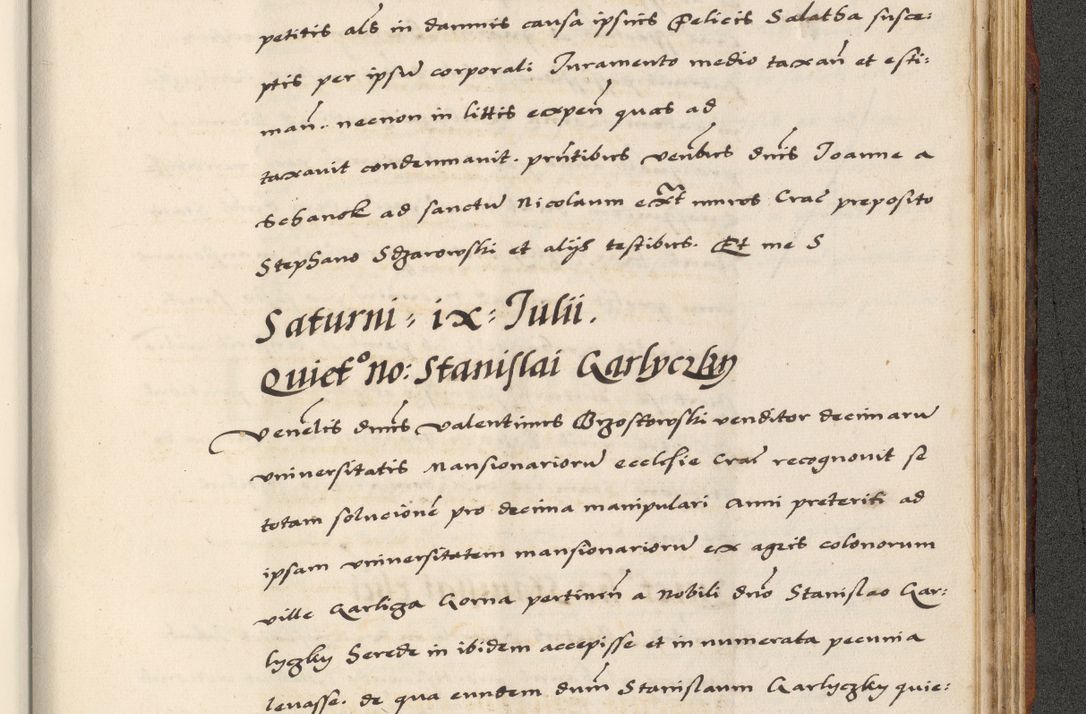 petitis als in damnis causa ipsius Felicis Salatha susce:
ptis per ipsũ corporali Iuramento medio taxañ et esti:
mañ. necnon in littis expeñ quas ad
taxavit condemnavit. prñtibus veñbus dnis Ioanne a
Schanok ad sanctũ Nicolaum ext muros Crac preposito
Stephano Sdzarowski et alijs testibus. Et me S
Saturni . ix . Iulii.
Quietº no: Stanislai Garlyczky
Venelis dnus Valentinus Brzostowski venditor decimarũ
universitatis Mansionariorũ ecclesie Crac recognovit se
totam solucionẽ pro decima manipulari Anni preteriti ad
ipsam universitatem mansionariorũ ex agris colonorum
ville Garliga Gorna pertineñ a Nobili dno Stanislao Gar:
lyczky herede in ibidem accepisse et in numerata pecunia
levasse. de qua eundem dnum Stanislaum Garlyczky quie: